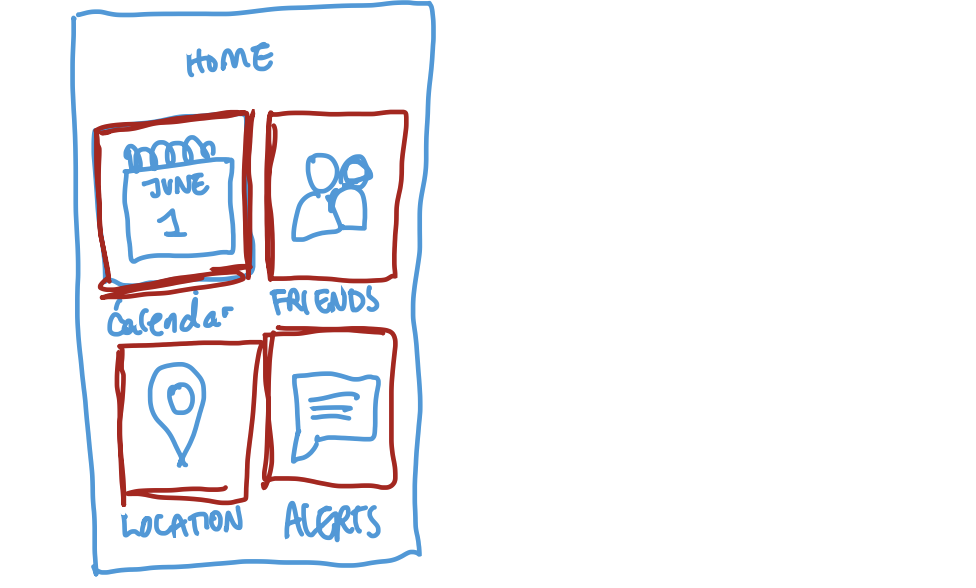 HOME
JUNE
1
Calendar
FRIENDS
LOCATION
ALERTS